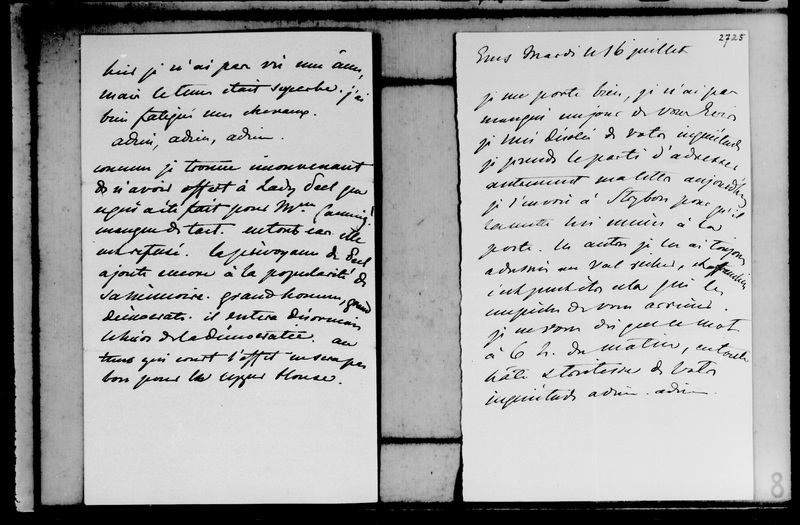 hier je n'ai pas vu une âme,
mais le tems était superbe. j'ai
bien fatigué mes chevaux.
adieu, adieu, adieu.
comme je trouve inconvenant
de n'avoir offert à Lady Peel que
ce qui a été fait pour Mrs Canning!
manque de tact. en tout cas elle
eut refusé. la prévoyance de Peel
ajoute encore à la popularité de
sa mémoire. grand homme, grand
démocrate. il restera désormais
le héros de la démocratie. au
tems qui court l'effet ne sera pas
bon pour la upper House.
2725
Ems Mardi le 16 juillet
je me porte bien, je n'ai pas
manqué un jour de vous écrire
je suis désolée de votre inquiétude
je prends le parti d'adresser
autrement ma lettre aujourd'hui
je l'envoie à Stogbon pour qu'il
la mette lui même à la
poste. les autres je les ai toujours
adressées au Val Richer,
c'est peut-être cela qui les
empêche de vous arriver.
je ne vous dis que ce mot
à 6 h. du matin, en toute
hâte & tristesse de votre
inquiétude adieu. adieu.
8